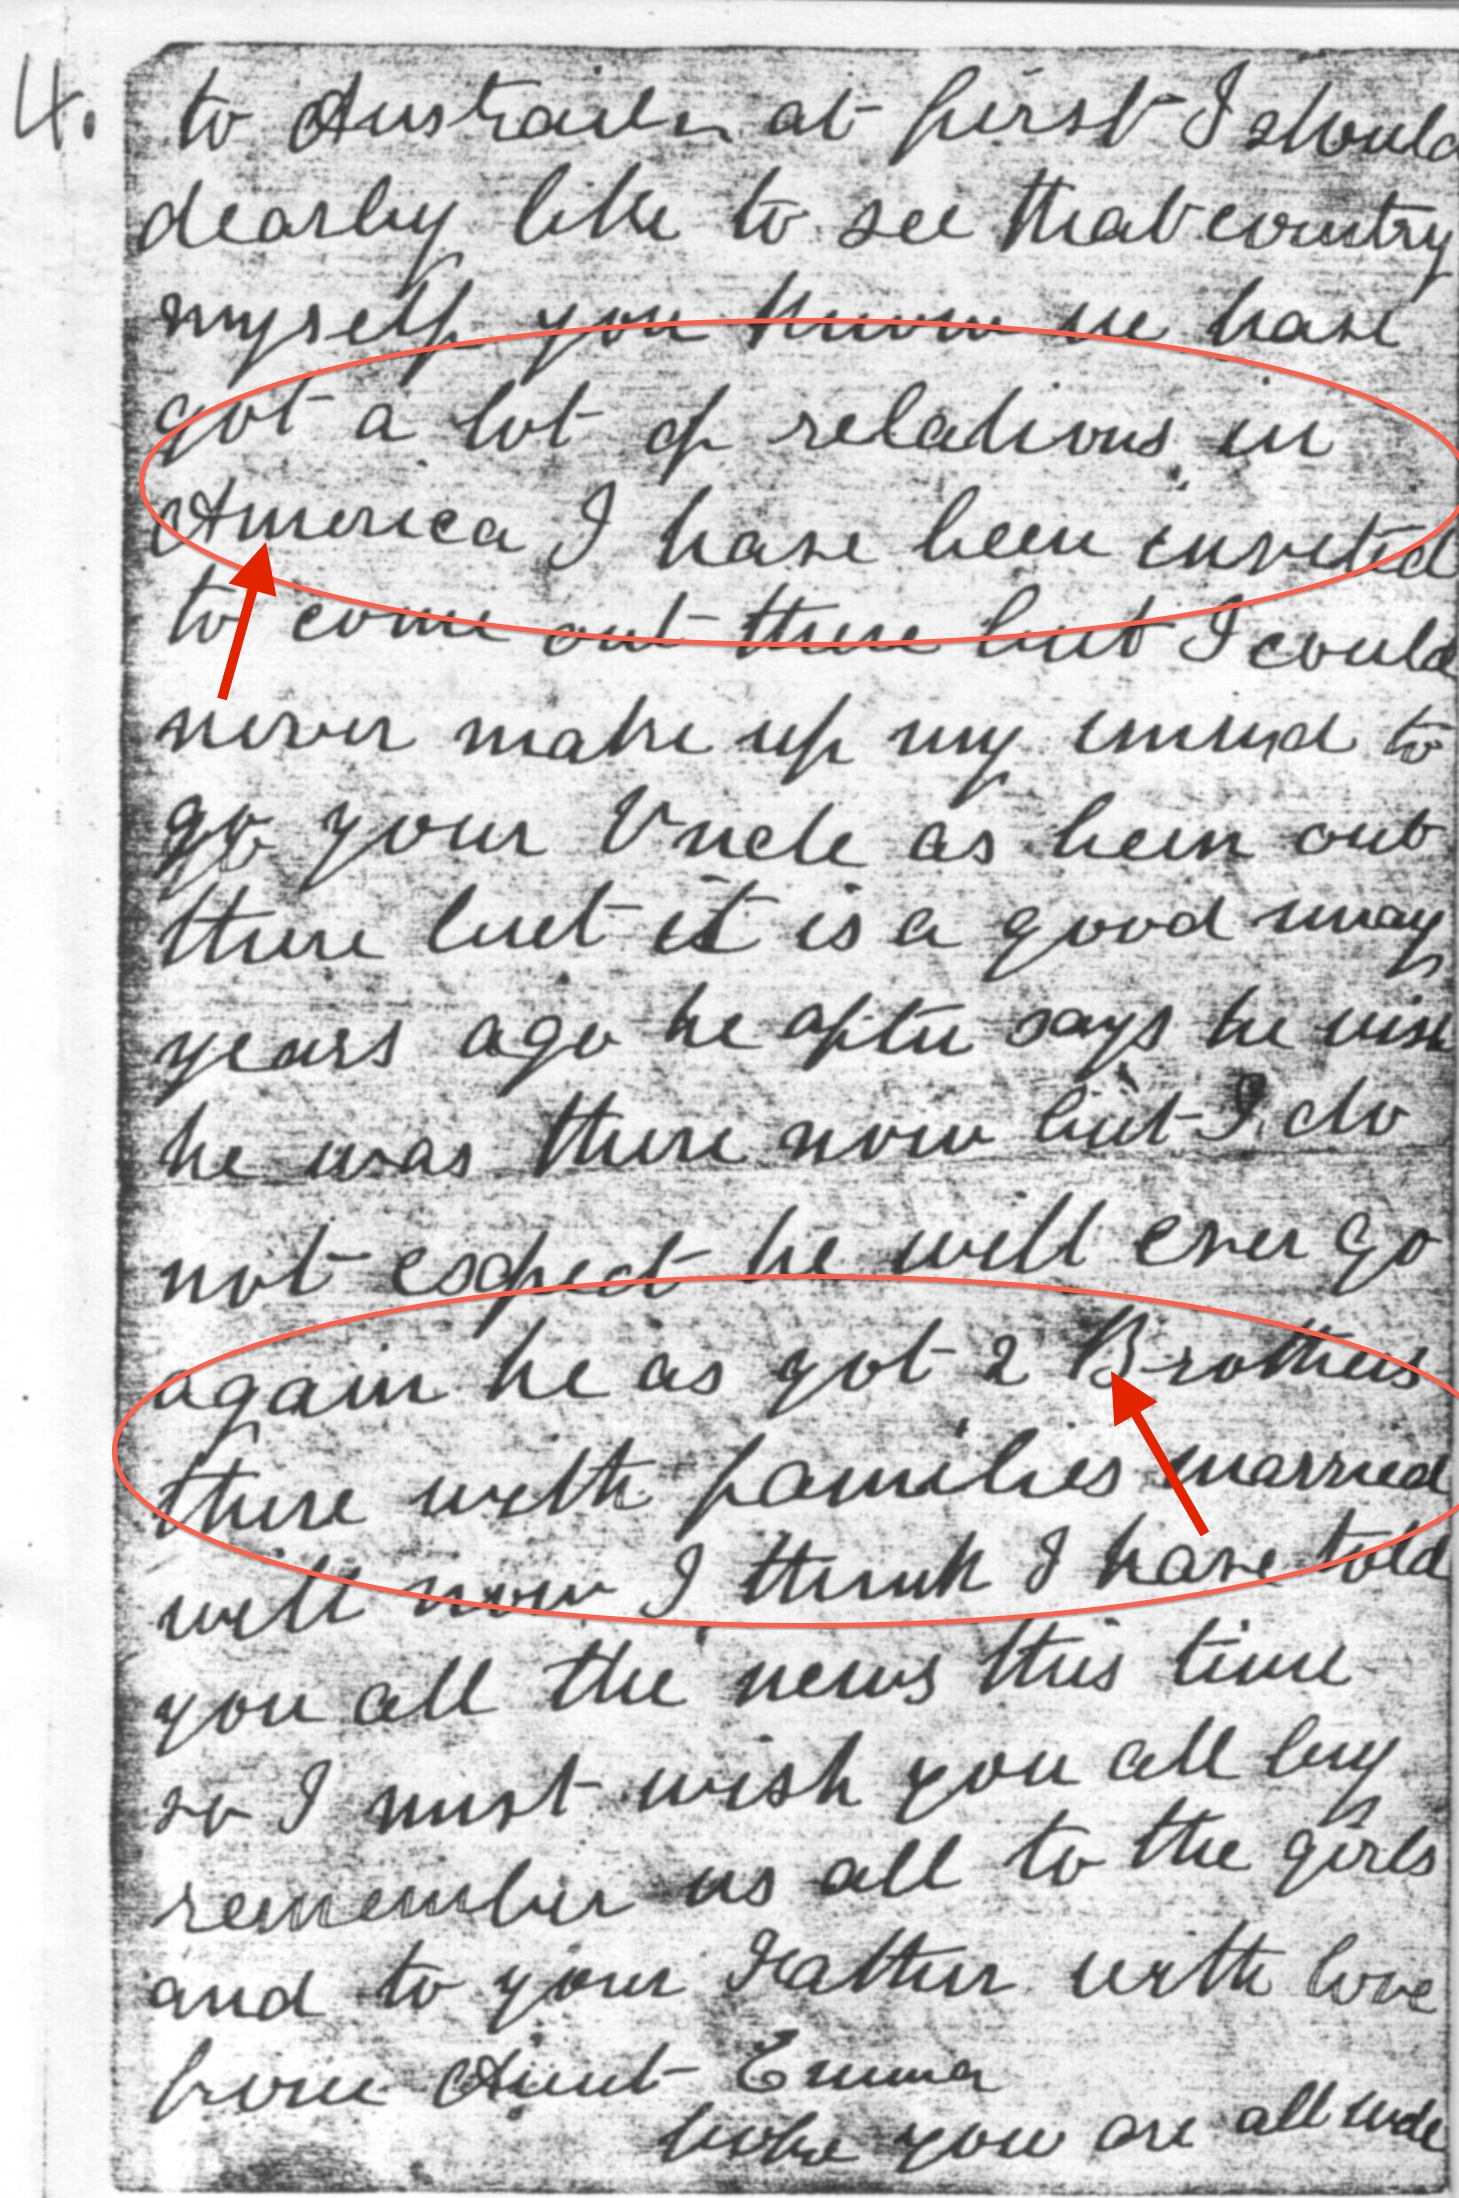 4. to Australia at first I should
dearly like to see that country
myself you know we have
got a lot of relations in
America I have been invited
to come out there but I could
never make up my mind to
go your Uncle as bein out
there but it is a good may
years ago he often says he wish
he was there now but I do
not expect he will ever go
again he as got 2 Brothers
there with families married
will now I think I have told
you all the news this time
so I must wish you all by
remember us all to the girls
and to your Father with love
from Aunt Emma
hope you are all